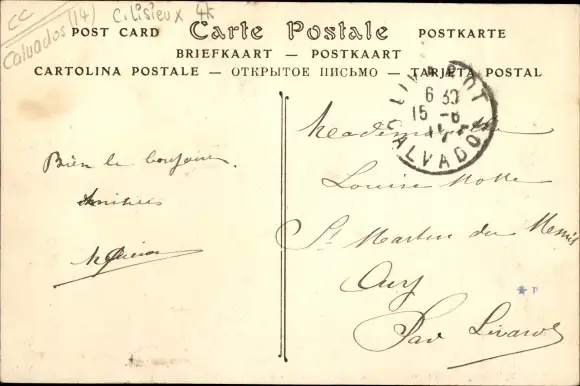 CC
Calvados (14) C. Lisieux 4k
Carte Postale
POST CARD POSTKARTE
BRIEFKAART — POSTKAART
CARTOLINA POSTALE — ОТКРЫТОЕ ПИСЬМО — TARJETA POSTAL
6 30
15 - 6
CALVADOS
Bien le bonjour.
Amitiés
Mademoiselle
Louise Motte
St Martin du Mesnil
Oury
Par Livarot